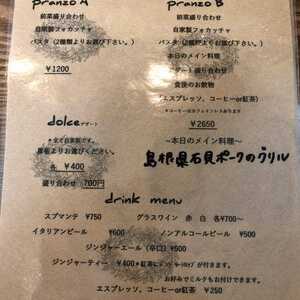 pranzo A
前菜盛り合わせ
自家製フォカッチャ
パスタ（2種類よりお選び下さい。）
¥1200
pranzo B
前菜盛り合わせ
自家製フォカッチャ
パスタ（2種類よりお選び下さい。）
本日のメイン料理
デザート盛り合わせ
食後のお飲物
（エスプレッソ、コーヒーor紅茶）
¥2650
dolce デザート
＊全て自家製です。
黒板よりお選びください。
各 ¥400
盛り合わせ 700円
～本日のメイン料理～
島根県石見ポークのグリル
drink menu
スプマンテ ¥750
グラスワイン 赤 白 各¥700～
イタリアンビール ¥600
ノンアルコールビール ¥500
ジンジャーエール（辛口）¥500
ジンジャーティー ¥400
が付きます。
お好みでミルクもお付けできます。
エスプレッソ、コーヒーor紅茶 ¥250